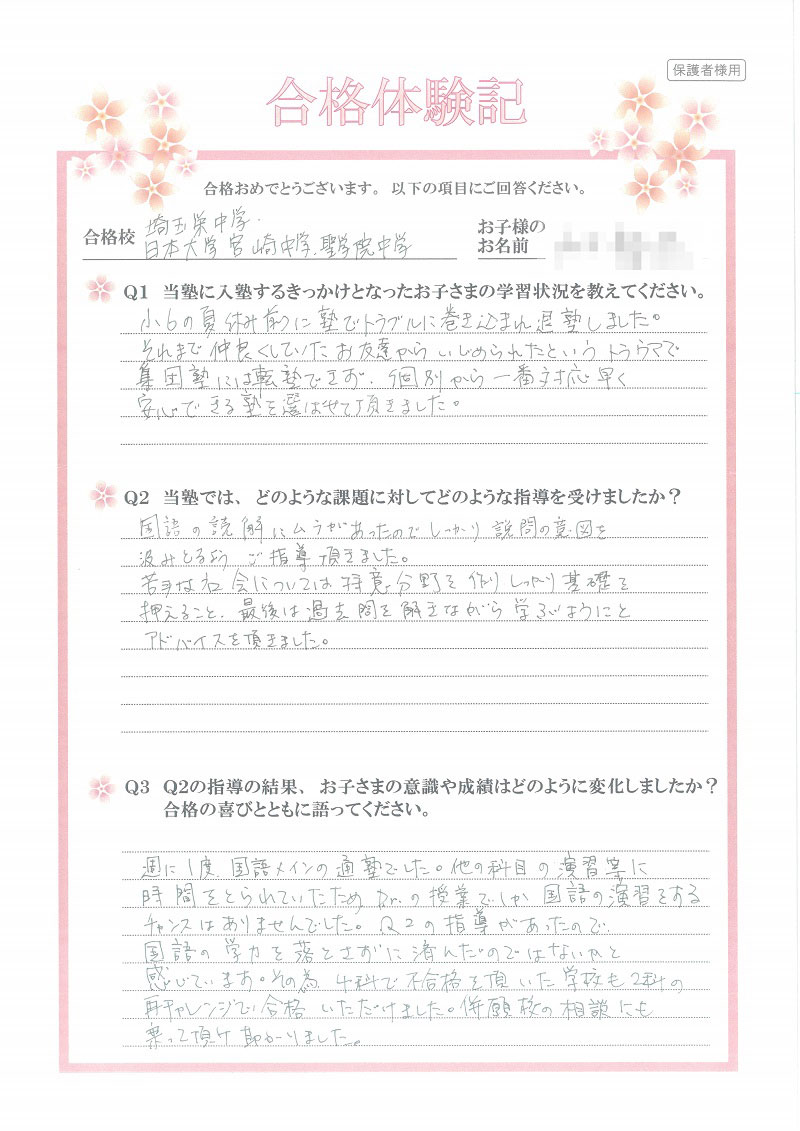 保護者様用
合格体験記
合格おめでとうございます。以下の項目にご回答ください。
合格校
埼玉栄中学・
日本大学宮崎中学.聖学院中学
お子様の
お名前
Q1 当塾に入塾するきっかけとなったお子さまの学習状況を教えてください。
小6の夏休み前に塾でトラブルに巻き込まれ退塾しました。
それまで仲良くしていたお友達からいじめられたというトラウマで
集団塾には転塾できず、個別から一番対応早く
安心できる塾を選ばせて頂きました。
Q2 当塾では、どのような課題に対してどのような指導を受けましたか？
国語の読解にムラがあったのでしっかり説問の意図を
汲みとるよう ご指導頂きました。
苦手な社会については得意分野を作りしっかり基礎を
押えること、最後は過去問を解きながら学ぶようにと
アドバイスを頂きました。
Q3 Q2の指導の結果、お子さまの意識や成績はどのように変化しましたか？
合格の喜びとともに語ってください。
週に1度、国語メインの通塾でした。他の科目の演習等に
時間をとられていたため Dr.の授業でしか国語の演習をする
チャンスはありませんでした。Q2の指導があったので、
国語の学力を落とさずに済んだのではないかと
感じています。その為 4科で不合格を頂いた学校も2科の
再チャレンジで合格いただけました。併願校の相談にも
乗って頂け助かりました。